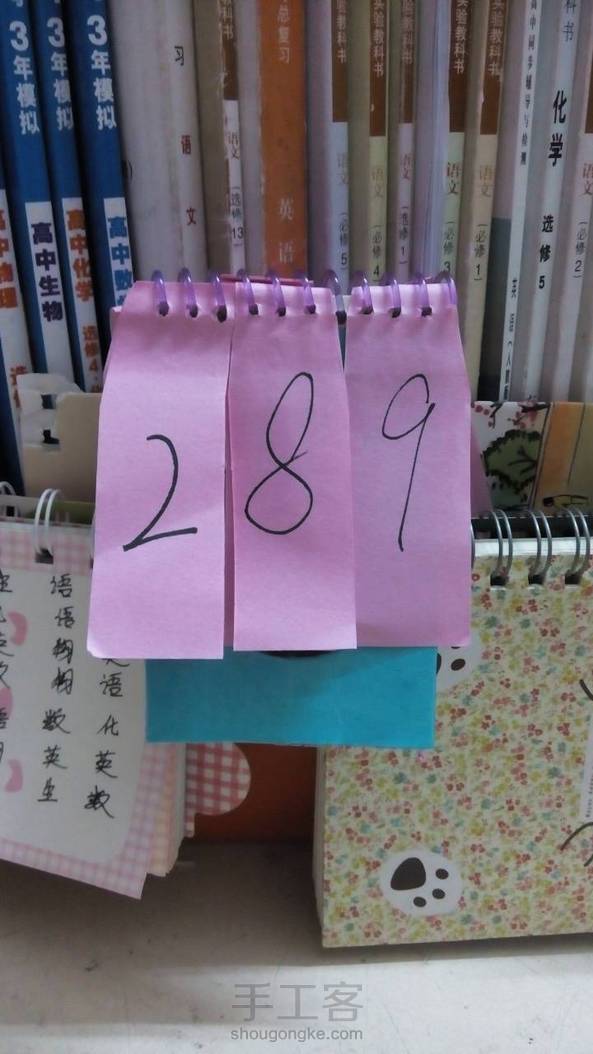 3年模拟
3年模拟
3年模拟
高中生物
高中化学 选修4
高中数
习
语文
语文 (选修13
总复习
英语
实验教科书
语文 (必修5
实验教科书
语文 (必修4
教科书
语文 (选修1
实验教科书
语文 (必修3
实验教科书
语文 (必修1)
高中同步辅导与检测
英语 (人教版
化学 选修5
科书
语文 (必修2)
2 8 9
语语物物数英生
语化英数
手工客
shougongke.com